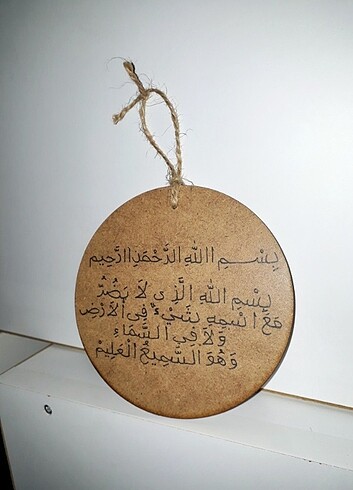 بِسْمِ اللهِ الرَّحْمَنِ الرَّحِيم
بِسْمِ اللهِ الَّذِي لاَ يَضُرُّ
مَعَ اسْمِهِ شَيْءٌ فِي الْأَرْضِ
وَلاَ فِي السَّمَاءِ
وَهُوَ السَّمِيعُ الْعَلِيمُ